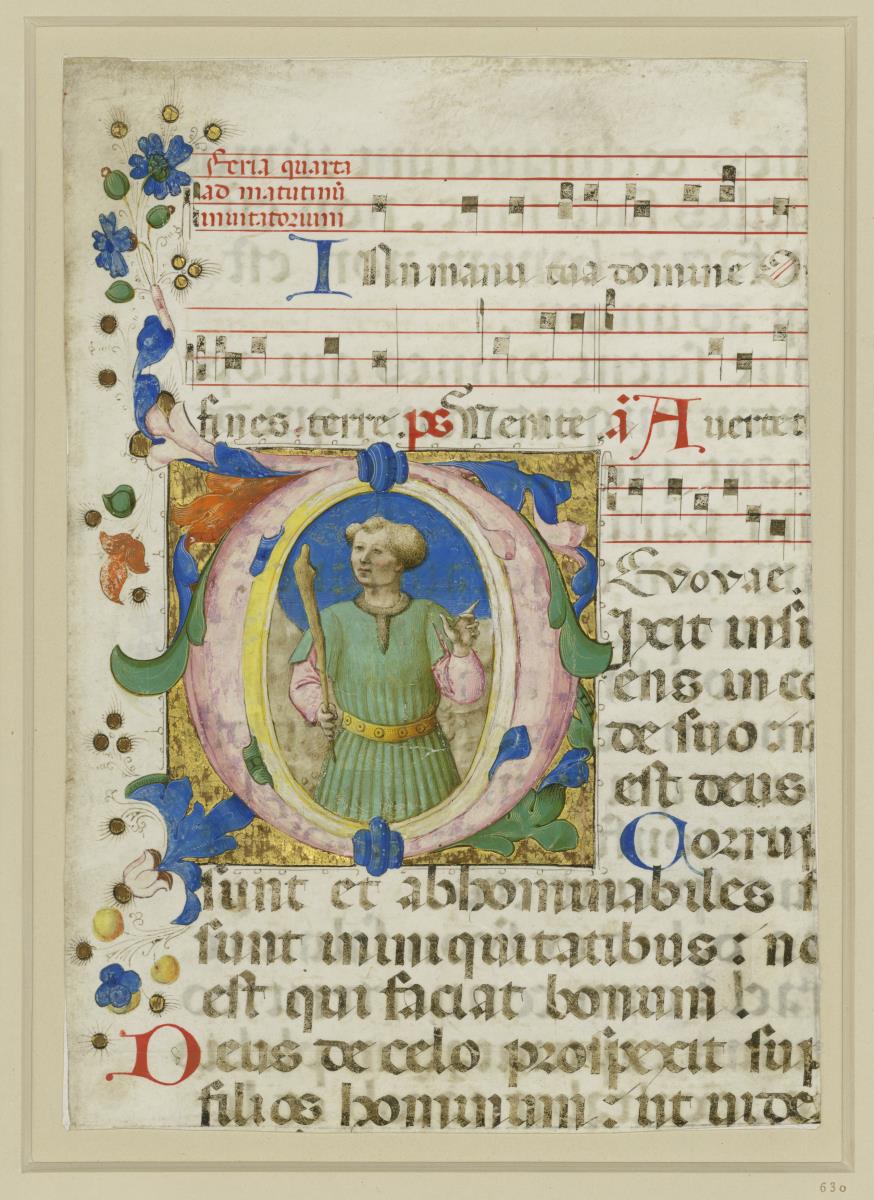 Feria quarta
ad matutinũ
inuitatorium
IN manu tua domine O
fines terre. ps Venite. ã Auertet
Evovae.
Ixit insi
ens in co
de suo: n
est deus
Corrup
sunt et abhominabiles f
sunt in iniquitatibus: no
est qui faciat bonum!
Deus de celo prospexit sup
filios hominum: ut uide
630